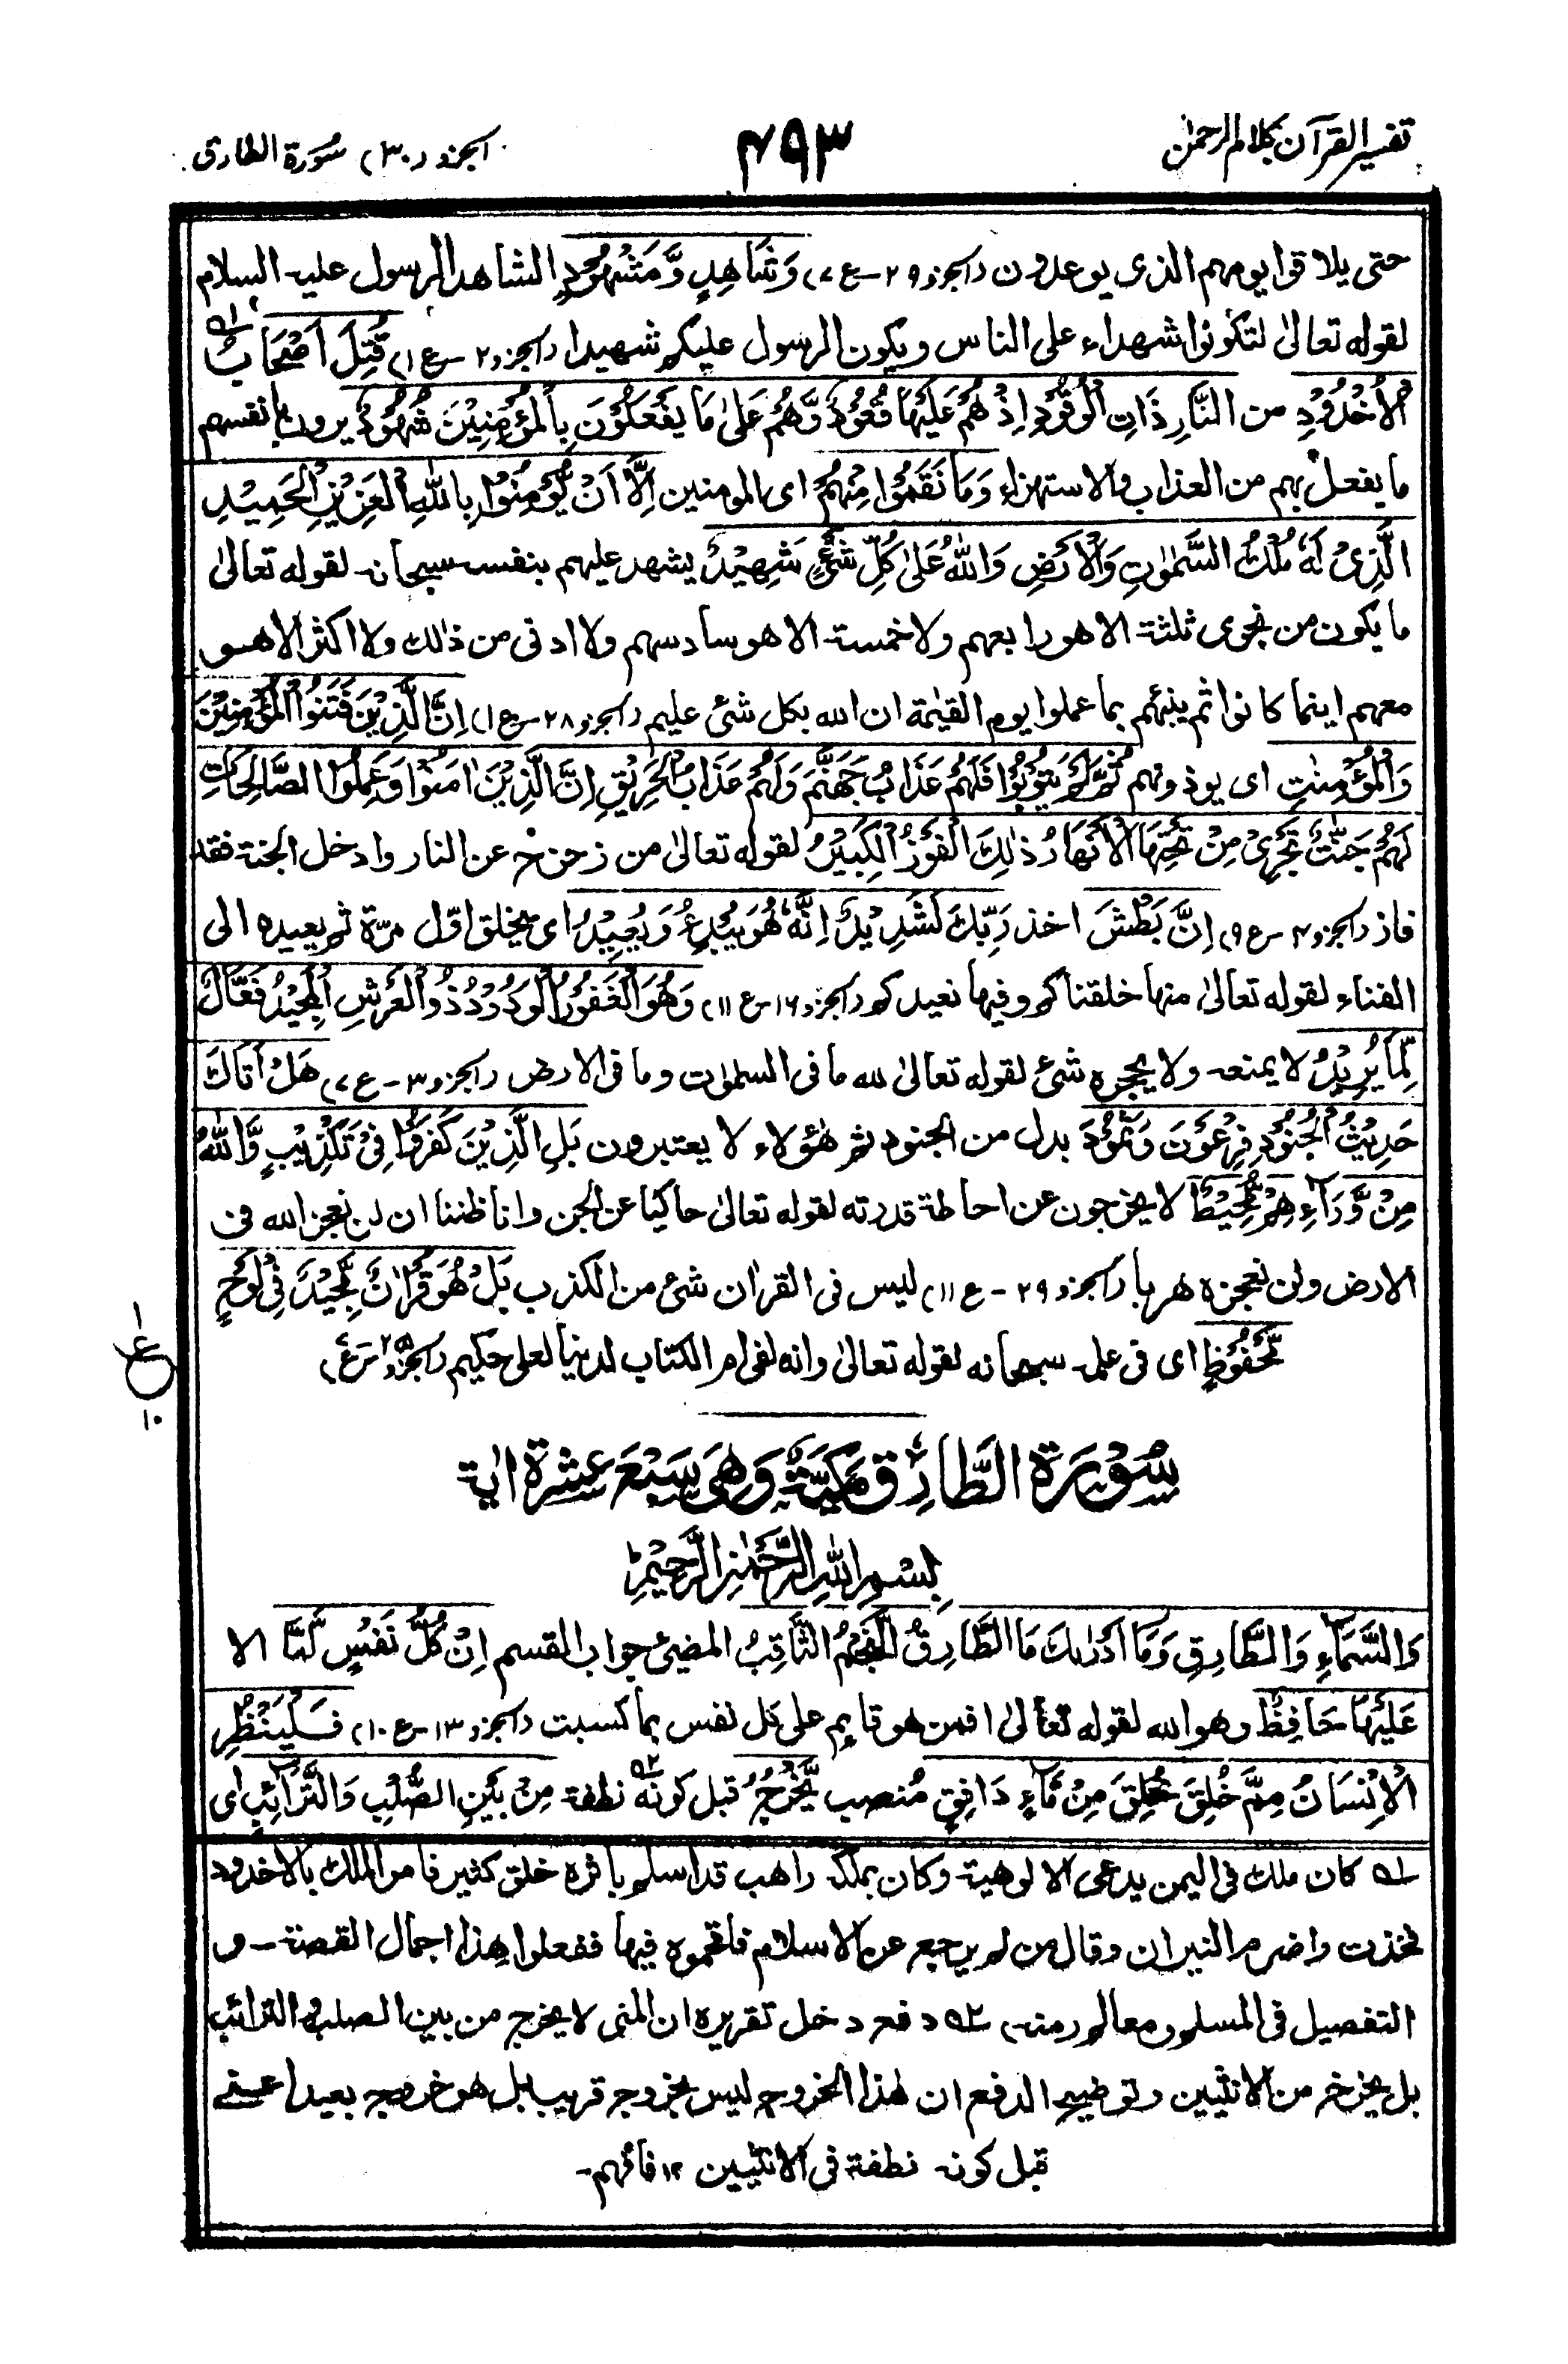 تفسير القرآن بكلام الرحمٰن
۴۹۳
الجزو (۳۰) سُورة الطارق
حتى يلاقوا يومهم الذى يوعدون (الجزو ۲۹-ع ۷) وَشَاهِدٍ وَّمَشْهُوْدٍ الشاهد الرسول عليه السلام
لقوله تعالىٰ لتكونوا شهداء على الناس ويكون الرسول عليكم شهيدا (الجزو ۲-ع ۱) قُتِلَ اَصْحَابُ ۱ه
الْاُخْدُوْدِ من النَّارِ ذَاتِ الْوَقُوْدِ اِذْ هُمْ عَلَيْهَا قُعُوْدٌ وَّهُمْ عَلٰى مَا يَفْعَلُوْنَ بِالْمُؤْمِنِيْنَ شُهُوْدٌ يرون بانفسهم
ما يفعل بهم من العذاب والاستهزاء وَمَا نَقَمُوْا مِنْهُمْ اى المومنين اِلَّا اَنْ يُّؤْمِنُوْا بِاللهِ الْعَزِيْزِ الْحَمِيْدِ
الَّذِىْ لَهٗ مُلْكُ السَّمٰوٰتِ وَالْاَرْضِ وَاللهُ عَلٰى كُلِّ شَىْءٍ شَهِيْدٌ يشهد عليهم بنفسه سبحانه لقوله تعالىٰ
ما يكون من نجوى ثلثة الا هو رابعهم ولا خمسة الا هو سادسهم ولا ادنى من ذٰلك ولا اكثر الا هو
معهم اينما كانوا ثم ينبئهم بما عملوا يوم القيٰمة ان الله بكل شئ عليم (الجزو ۲۸-ع ۱) اِنَّ الَّذِيْنَ فَتَنُوا الْمُؤْمِنِيْنَ
وَالْمُؤْمِنٰتِ اى يوذونهم ثُمَّ لَمْ يَتُوْبُوْا فَلَهُمْ عَذَابُ جَهَنَّمَ وَلَهُمْ عَذَابُ الْحَرِيْقِ اِنَّ الَّذِيْنَ اٰمَنُوْا وَعَمِلُوا الصَّالِحَاتِ
لَهُمْ جَنّٰتٌ تَجْرِىْ مِنْ تَحْتِهَا الْاَنْهَارُ ذٰلِكَ الْفَوْزُ الْكَبِيْرُ لقوله تعالىٰ من زحزح عن النار وادخل الجنة فقد
فاز (الجزو ۴-ع ۹) اِنَّ بَطْشَ اخذ رَبِّكَ لَشَدِيْدٌ اِنَّهٗ هُوَ يُبْدِئُ وَيُعِيْدُ اى يخلق اوّل مرّة ثم يعيده الى
الفناء لقوله تعالىٰ منها خلقناكم وفيها نعيدكم (الجزو ۱۶-ع ۱۱) وَهُوَ الْغَفُوْرُ الْوَدُوْدُ ذُوالْعَرْشِ الْمَجِيْدُ فَعَّالٌ
لِّمَا يُرِيْدُ لا يمنعه ولا يحجره شئ لقوله تعالىٰ لله ما فى السمٰوٰت وما فى الارض (الجزو ۳-ع ۷) هَلْ اَتَاكَ
حَدِيْثُ الْجُنُوْدِ فِرْعَوْنَ وَثَمُوْدَ بدل من الجنود ثم هٰؤلاء لا يعتبرون بَلِ الَّذِيْنَ كَفَرُوْا فِىْ تَكْذِيْبٍ وَّاللهُ
مِنْ وَّرَآءِهِمْ مُّحِيْطٌ لا يخرجون عن احاطة قدرته لقوله تعالىٰ حاكيا عن الجن وانا ظننا ان لن نعجز الله فى
الارض ولن نعجزه هربا (الجزو ۲۹-ع ۱۱) ليس فى القراٰن شئ من الكذب بَلْ هُوَ قُرْاٰنٌ مَّجِيْدٌ فِىْ لَوْحٍ
مَّحْفُوْظٍ اى فى علمه سبحانه لقوله تعالىٰ وانه لفى ام الكتاب لدينا لعلى حكيم (الجزو ۲۵-ع)
ع
۱۰
سُوْرَةُ الطَّارِقِ مَكِّيَّةٌ وَهِىَ سَبْعَ عَشْرَةَ اٰية
بِسْمِ اللهِ الرَّحْمٰنِ الرَّحِيْمِ
وَالسَّمَآءِ وَالطَّارِقِ وَمَا اَدْرٰىكَ مَا الطَّارِقُ النَّجْمُ الثَّاقِبُ المضيئ جواب القسم اِنْ كُلُّ نَفْسٍ لَّمَّا الا
عَلَيْهَا حَافِظٌ وهو الله لقوله تعالىٰ افمن هو قايم على كل نفس بما كسبت (الجزو ۱۳-ع ۱۰) فَلْيَنْظُرِ
الْاِنْسَانُ مِمَّ خُلِقَ خُلِقَ مِنْ مَّآءٍ دَافِقٍ مُنصب يَّخْرُجُ قبل كونه ۲ه نطفة مِنْ بَيْنِ الصُّلْبِ وَالتَّرَآئِبِ اى
۱ه كان ملك فى اليمن يدعى الالوهية وكان بملكه راهب قد اسلم باثره خلق كثير فامر الملك بالاخدود
فخذت واضرم النيران وقال من لم يرجع عن الاسلام فاقحموه فيها ففعلوا هذا اجمال القصة - و
التفصيل فى المسلم ومعالم (منه) ۲ه دفع دخل تقريره ان المنى لا يخرج من بين الصلب والترائب
بل يخرج من الانثيين وتوضيح الدفع ان هٰذا الخروج ليس بخروج قريب بل هو خروج بعيد اعنى
قبل كونه نطفة فى الانثيين ۱۲ فافهم-